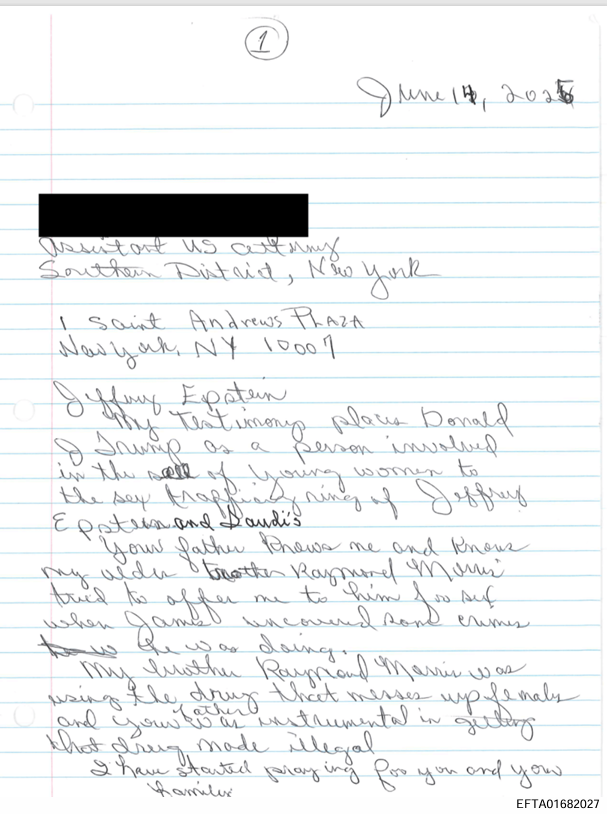 1
June 14, 2025
Assistant US Attorny
Southern District, New York
1 Saint Andrews PLAZA
New York, NY 10007
Jeffrey Epstein
My Testimony places Donald
J Trump as a person involved
in the sell of young women to
the sex trafficing ring of Jeffrey
Epstein and Saudi's
Your father knows me and knows
my older brother Raymond Morris
tried to offer me to him for sex
when James uncovered some crimes
he was doing.
My brother Raymond Morris was
using the drug that messes up females
father
and your was instrumental in getting
that drug made illegal
I have started praying for you and your
families
EFTA01682027